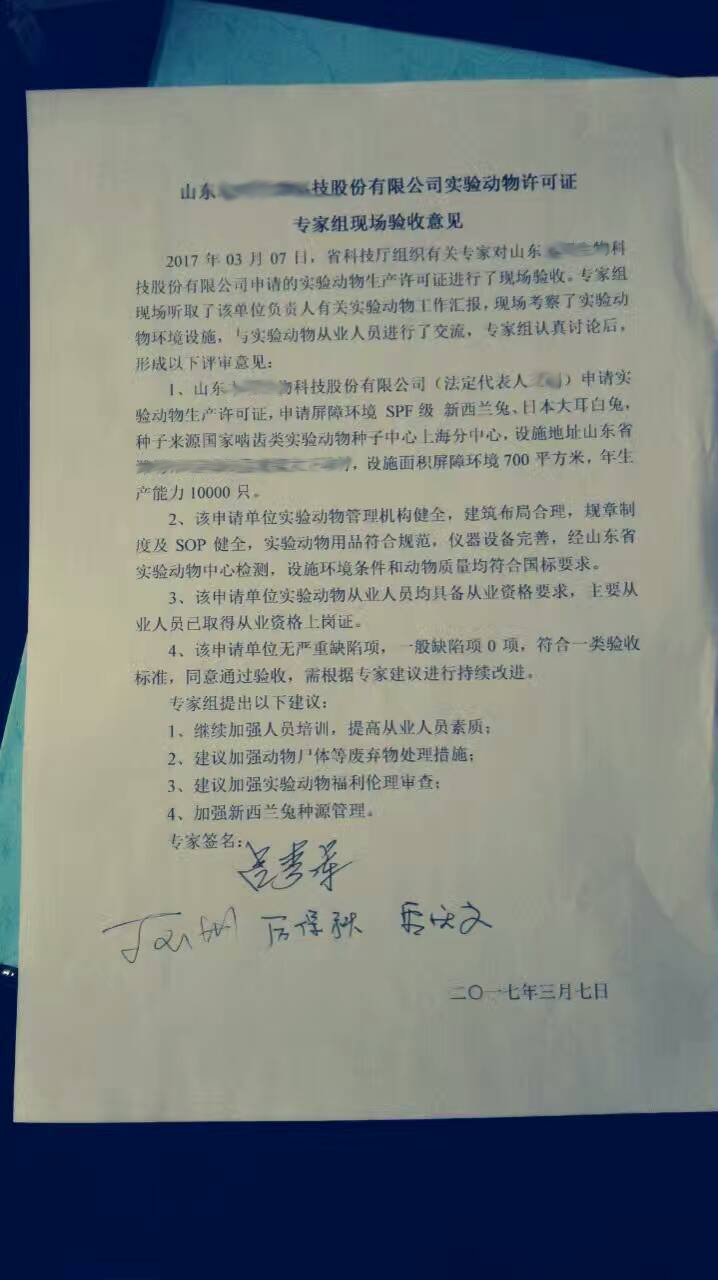 山东 技股份有限公司实验动物许可证
专家组现场验收意见
2017 年 03 月 07 日，省科技厅组织有关专家对山东 生物科
技股份有限公司申请的实验动物生产许可证进行了现场验收。专家组
现场听取了该单位负责人有关实验动物工作汇报，现场考察了实验动
物环境设施，与实验动物从业人员进行了交流，专家组认真讨论后，
形成以下评审意见：
1、山东 物科技股份有限公司（法定代表人 ）申请实
验动物生产许可证，申请屏障环境 SPF 级 新西兰兔、日本大耳白兔，
种子来源国家啮齿类实验动物种子中心上海分中心，设施地址山东省
，设施面积屏障环境 700 平方米，年生
产能力 10000 只。
2、该申请单位实验动物管理机构健全，建筑布局合理，规章制
度及 SOP 健全，实验动物用品符合规范，仪器设备完善，经山东省
实验动物中心检测，设施环境条件和动物质量均符合国标要求。
3、该申请单位实验动物从业人员均具备从业资格要求，主要从
业人员已取得从业资格上岗证。
4、该申请单位无严重缺陷项，一般缺陷项 0 项，符合一类验收
标准，同意通过验收，需根据专家建议进行持续改进。
专家组提出以下建议：
1、继续加强人员培训，提高从业人员素质；
2、建议加强动物尸体等废弃物处理措施；
3、建议加强实验动物福利伦理审查；
4、加强新西兰兔种源管理。
专家签名：
二〇一七年三月七日